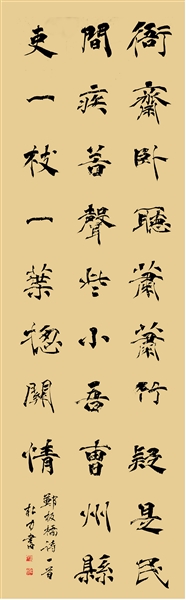 衙齋臥聽蕭蕭竹疑是民
間疾苦聲些小吾曹州縣
吏一枝一葉總關情
鄭板橋詩一首
杜書